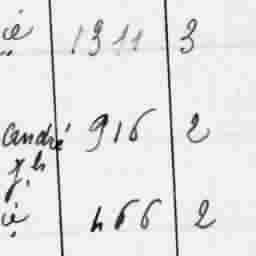 ié 1911 3
Candré 916 2
ié 466 2